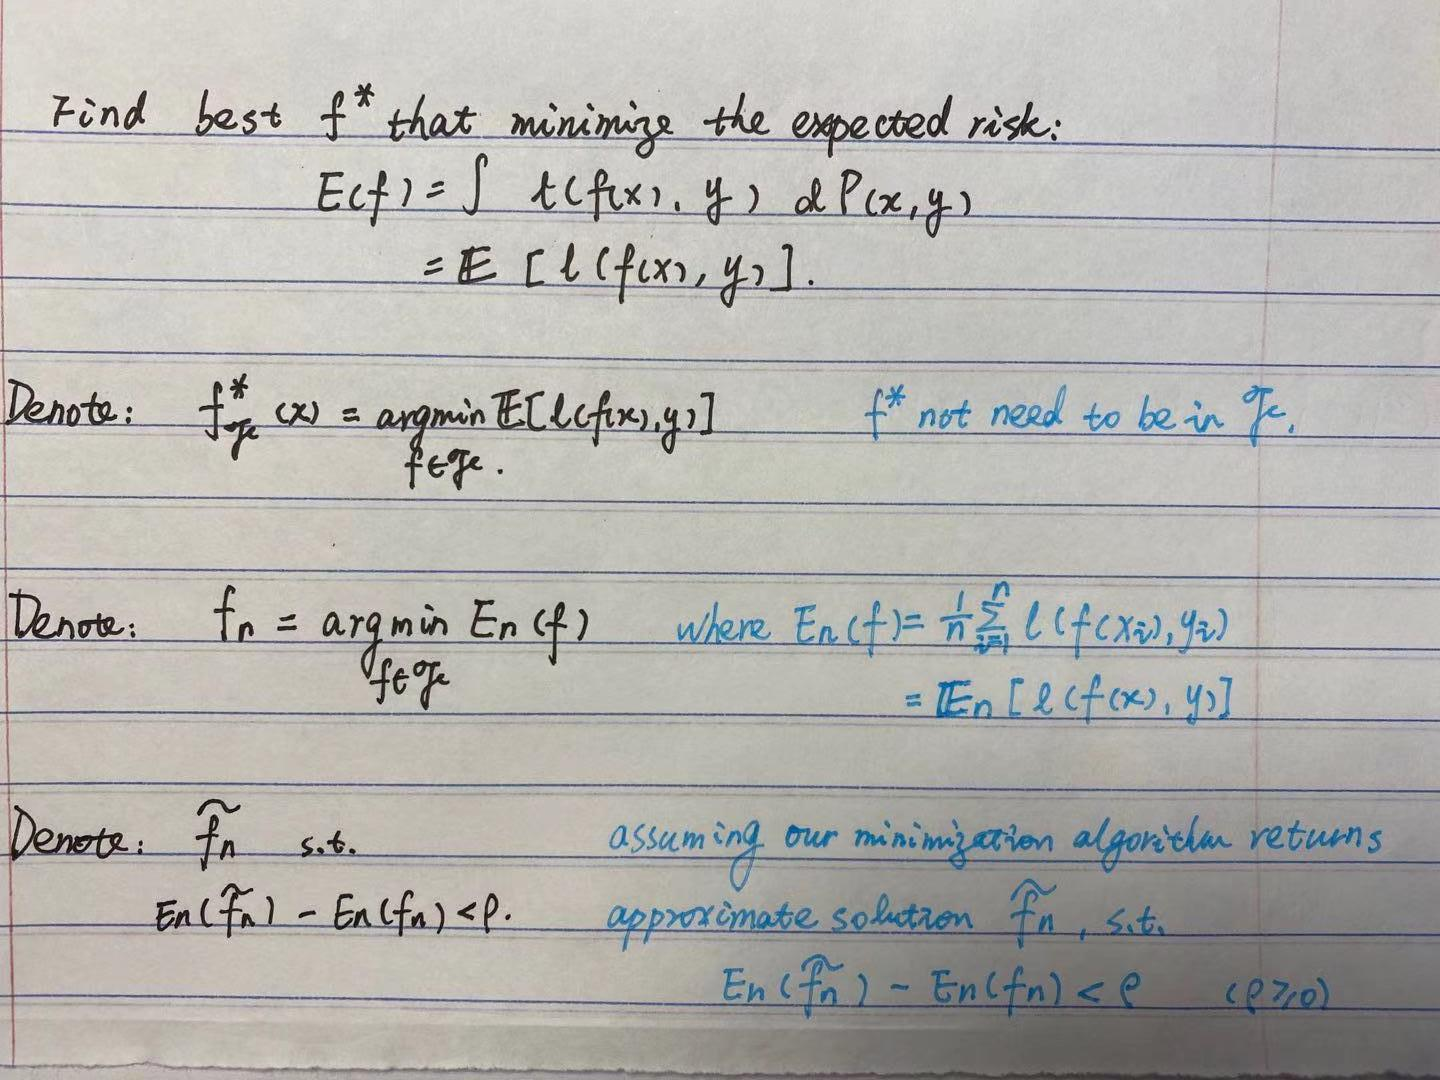 Find best f* that minimize the expected risk:
E(f) = ∫ l(f(x), y) dP(x,y)
= 𝔼 [l(f(x), y)].
Denote: f*_ℱ (x) = argmin 𝔼[l(f(x),y)] f* not need to be in ℱ.
f∈ℱ.
Denote: fn = argmin En(f) where En(f) = 1/n Σ_{i=1}^{n} l(f(xi), yi)
f∈ℱ
= 𝔼n [l(f(x), y)]
Denote: f̃n s.t. assuming our minimization algorithm returns
En(f̃n) - En(fn) < ρ. approximate solution f̃n, s.t.
En(f̃n) - En(fn) < ρ (ρ≥0)